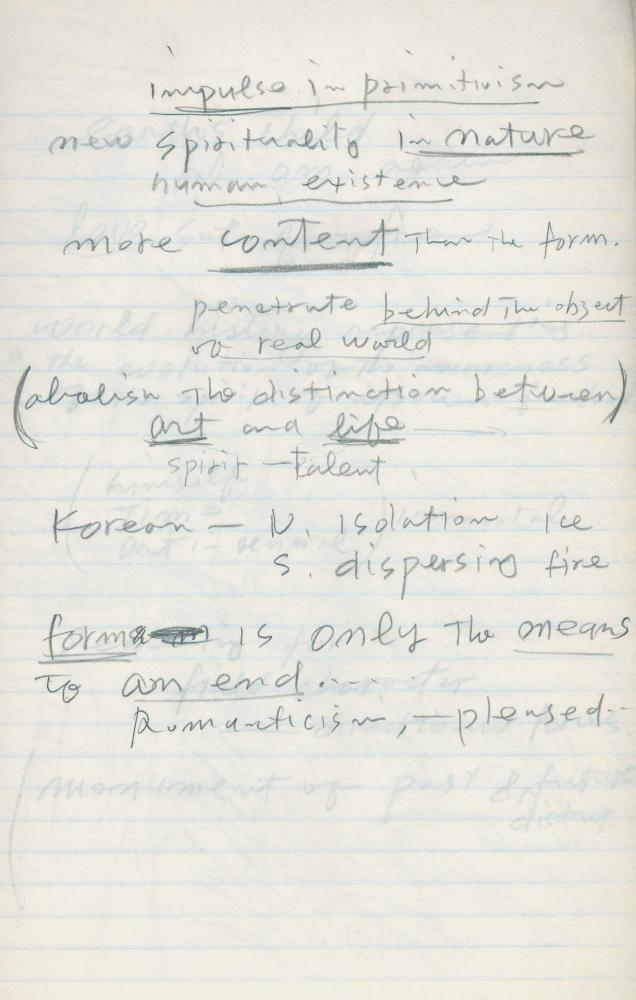 impulse in primitivism
new spirituality in nature
human existence
more content than the form.
penetrate behind the object
or real world
(abolish the distinction between)
art and life
spirit – talent
Korean – N. isolation Ice
S. dispersing fire
form is only the means
to an end ....
Romanticism, – pleased..
monument of past & future
distant